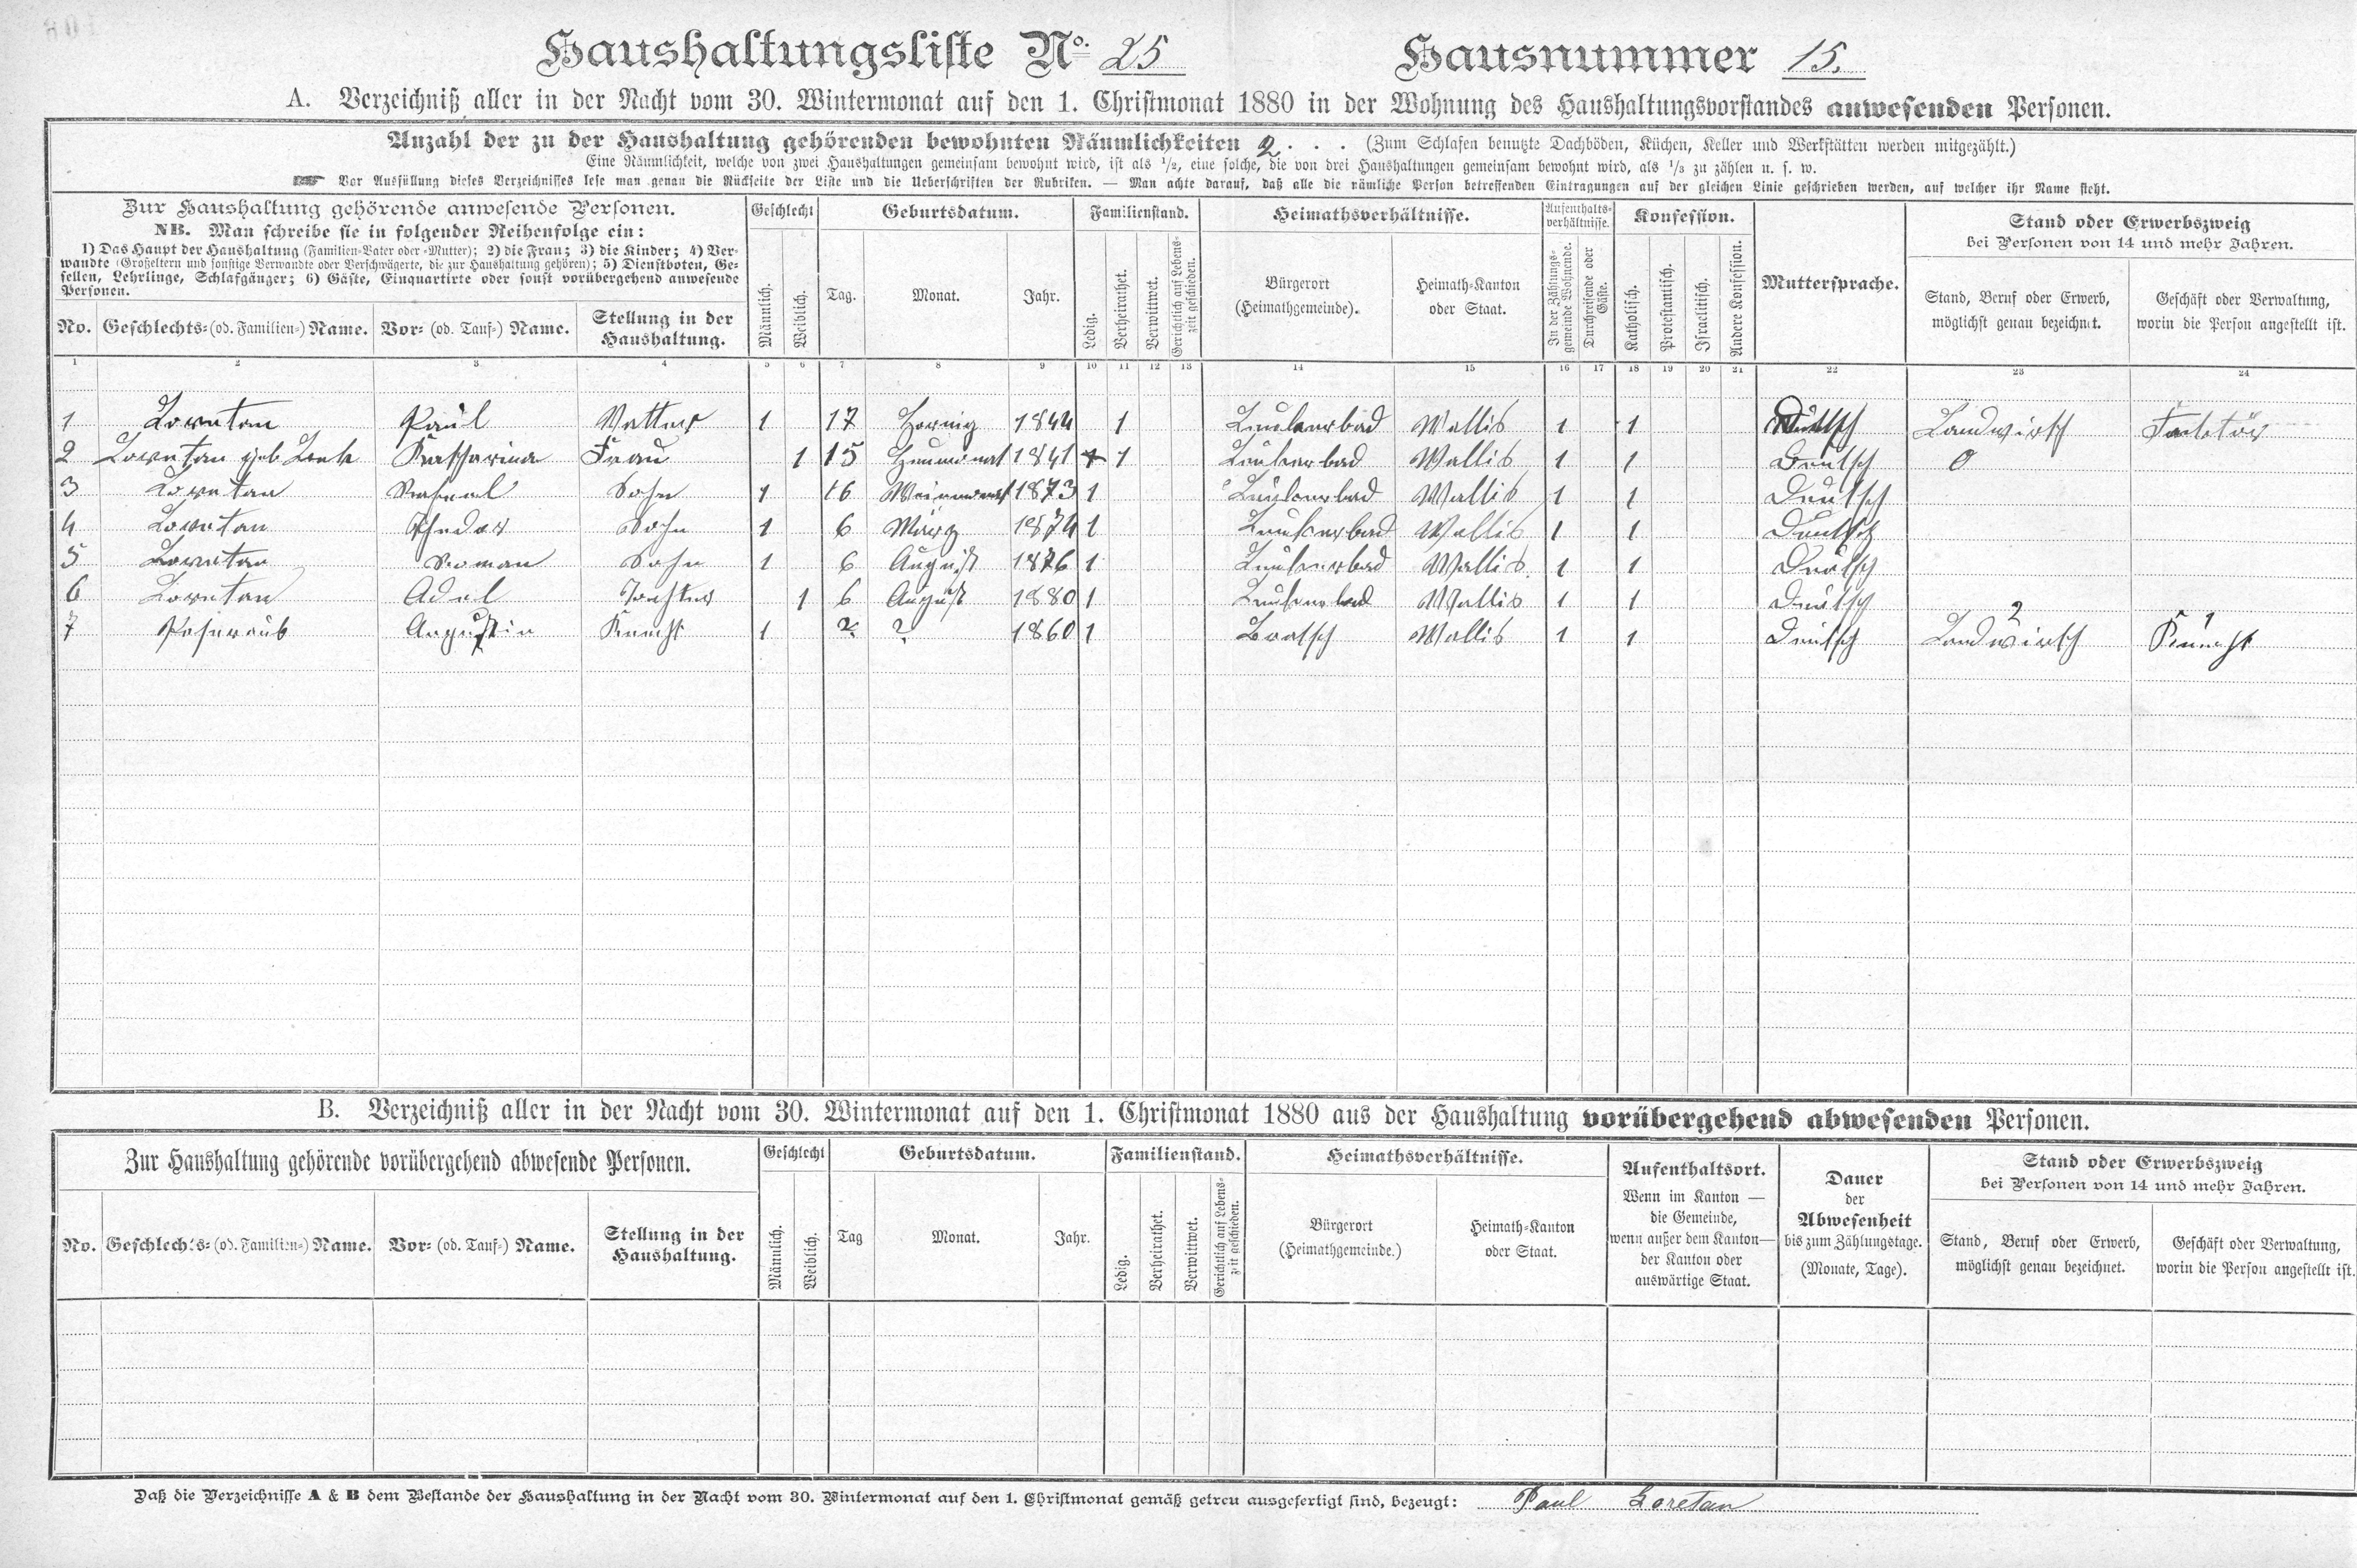 Haushaltungsliste No. 25 Hausnummer 15.
A. Verzeichniß aller in der Nacht vom 30. Wintermonat auf den 1. Christmonat 1880 in der Wohnung des Haushaltungsvorstandes anwesenden Personen.
Anzahl der zu der Haushaltung gehörenden bewohnten Räumlichkeiten 2 . . . (Zum Schlafen benutzte Dachböden, Küchen, Keller und Werkstätten werden mitgezählt.)
Eine Räumlichkeit, welche von zwei Haushaltungen gemeinsam bewohnt wird, ist als 1/2, eine solche, die von drei Haushaltungen gemeinsam bewohnt wird, als 1/3 zu zählen u. s. w.
Vor Ausfüllung dieses Verzeichnisses lese man genau die Rückseite der Liste und die Ueberschriften der Rubriken. — Man achte darauf, daß alle die nämliche Person betreffenden Eintragungen auf der gleichen Linie geschrieben werden, auf welcher ihr Name steht.
Zur Haushaltung gehörende anwesende Personen.
NB. Man schreibe sie in folgender Reihenfolge ein:
1) Das Haupt der Haushaltung (Familien-Vater oder -Mutter); 2) die Frau; 3) die Kinder; 4) Ver-
wandte (Großeltern und sonstige Verwandte oder Verschwägerte, die zur Haushaltung gehören); 5) Dienstboten, Ge-
sellen, Lehrlinge, Schlafgänger; 6) Gäste, Einquartirte oder sonst vorübergehend anwesende
Personen.
No. Geschlechts- (od. Familien-) Name. Vor- (od. Tauf-) Name. Stellung in der Haushaltung.
Geschlecht
Männlich. Weiblich.
Geburtsdatum.
Tag. Monat. Jahr.
Familienstand.
Ledig. Verheirathet. Verwittwet. Gerichtlich auf Lebenszeit geschieden.
Heimathsverhältnisse.
Bürgerort (Heimathgemeinde).
Heimath-Kanton oder Staat.
Aufenthalts-verhältnisse.
In der Zählungs-gemeinde Wohnende. Durchreisende oder Gäste.
Konfession.
Katholisch. Protestantisch. Israelitisch. Andere Konfession.
Muttersprache.
Stand oder Erwerbszweig
bei Personen von 14 und mehr Jahren.
Stand, Beruf oder Erwerb, möglichst genau bezeichnet.
Geschäft oder Verwaltung, worin die Person angestellt ist.
1 2 3 4 5 6 7 8 9 10 11 12 13 14 15 16 17 18 19 20 21 22 23 24
1 Loretan Paul Vatter 1 17 Hornig 1844 1 Leukerbad Wallis 1 1 Deutsch Landwirth Facktör
2 Loretan geb. Katharina Frau 1 15 Heumonat 1841 1 Leukerbad Wallis 1 1 Deutsch 0
3 Loretan Sohn 1 16 Weinmonat 1873 1 Leukerbad Wallis 1 1 Deutsch
4 Loretan Thedor Sohn 1 6 März 1874 1 Leukerbad Wallis 1 1 Deutsch
5 Loretan Roman Sohn 1 6 August 1876 1 Leukerbad Wallis 1 1 Deutsch
6 Loretan Adel Tochter 1 6 August 1880 1 Leukerbad Wallis 1 1 Deutsch
2 1
7 Augustin Knecht 1 ? ? 1860 1 Bratsch Wallis 1 1 Deutsch Landwirth Knecht
B. Verzeichniß aller in der Nacht vom 30. Wintermonat auf den 1. Christmonat 1880 aus der Haushaltung vorübergehend abwesenden Personen.
Zur Haushaltung gehörende vorübergehend abwesende Personen.
No. Geschlechts- (od. Familien-) Name. Vor- (od. Tauf-) Name. Stellung in der Haushaltung.
Geschlecht
Männlich. Weiblich.
Geburtsdatum.
Tag Monat. Jahr.
Familienstand.
Ledig. Verheirathet. Verwittwet. Gerichtlich auf Lebenszeit geschieden.
Heimathsverhältnisse.
Bürgerort (Heimathgemeinde.)
Heimath-Kanton oder Staat.
Aufenthaltsort.
Wenn im Kanton —
die Gemeinde,
wenn außer dem Kanton—
der Kanton oder
auswärtige Staat.
Dauer
der
Abwesenheit
bis zum Zählungstage.
(Monate, Tage).
Stand oder Erwerbszweig
bei Personen von 14 und mehr Jahren.
Stand, Beruf oder Erwerb, möglichst genau bezeichnet.
Geschäft oder Verwaltung, worin die Person angestellt ist.
Daß die Verzeichnisse A & B dem Bestande der Haushaltung in der Nacht vom 30. Wintermonat auf den 1. Christmonat gemäß getreu ausgefertigt sind, bezeugt: Paul Loretan